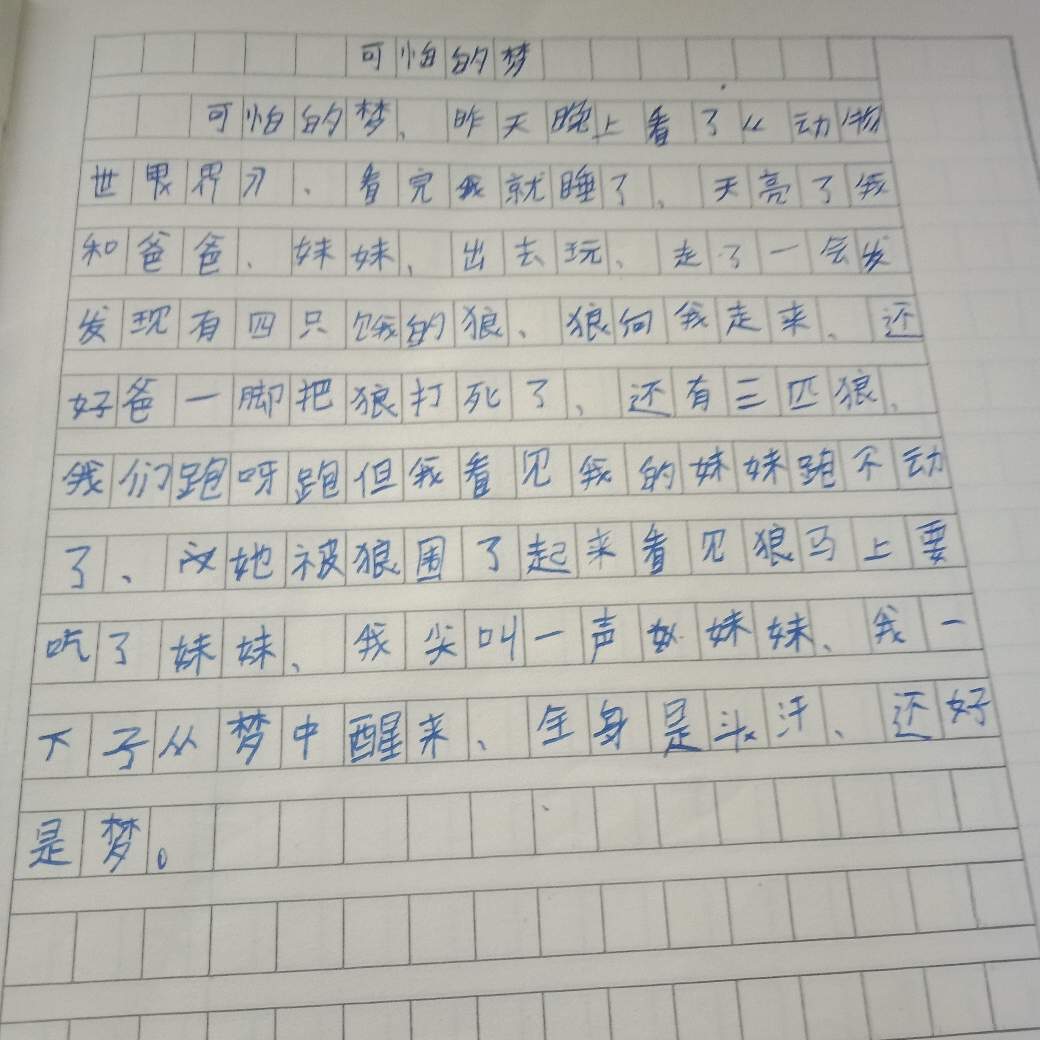 可怕的梦
可怕的梦、昨天晚上看了《动物
世界界》、看完我就睡了、天亮了我
和爸爸、妹妹、出去玩、走了一会发
发现有四只饿的狼、狼向我走来、还
好爸一脚把狼打死了、还有三匹狼、
我们跑呀跑但我看见我的妹妹跑不动
了、她被狼围了起来看见狼马上要
吃了妹妹、我尖叫一声妹妹、我一
下子从梦中醒来、全身是汗、还好
是梦。